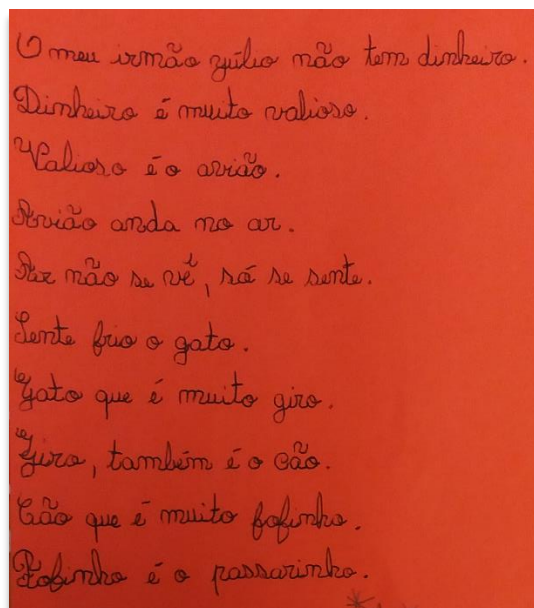 O meu irmão yúlio não tem dinheiro.
Dinheiro é muito valioso.
Valioso é o avião.
Avião anda no ar.
Ar não se vê, só se sente.
Sente frio o gato.
Gato que é muito giro.
Giro, também é o cão.
Cão que é muito fofinho.
Fofinho é o passarinho.